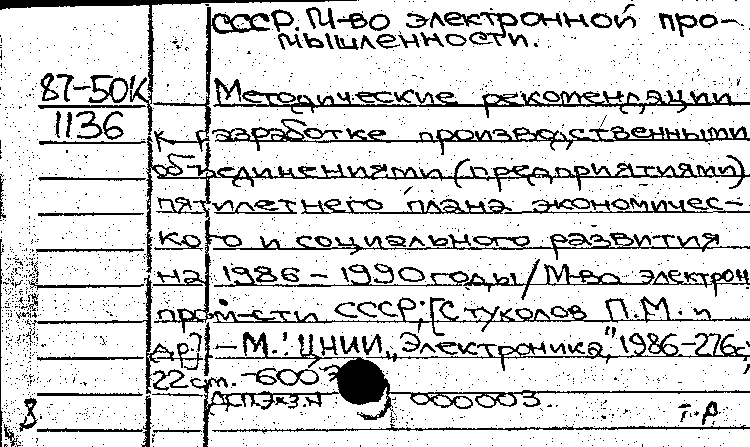 СССР. М-во электронной про-
мышленности.
87-50К Методические рекомендации
1136 к разработке производственными
объединениями (предприятиями)
пятилетнего плана экономичес-
кого и социального развития
на 1986 - 1990 годы / М-во электрон
пром-сти СССР; [Стуколов П.М. и
др.]. - М.: ЦНИИ „Электроника", 1986.-276с;
22 см. - 600
ДСП. Экз. N 000003.
т. р